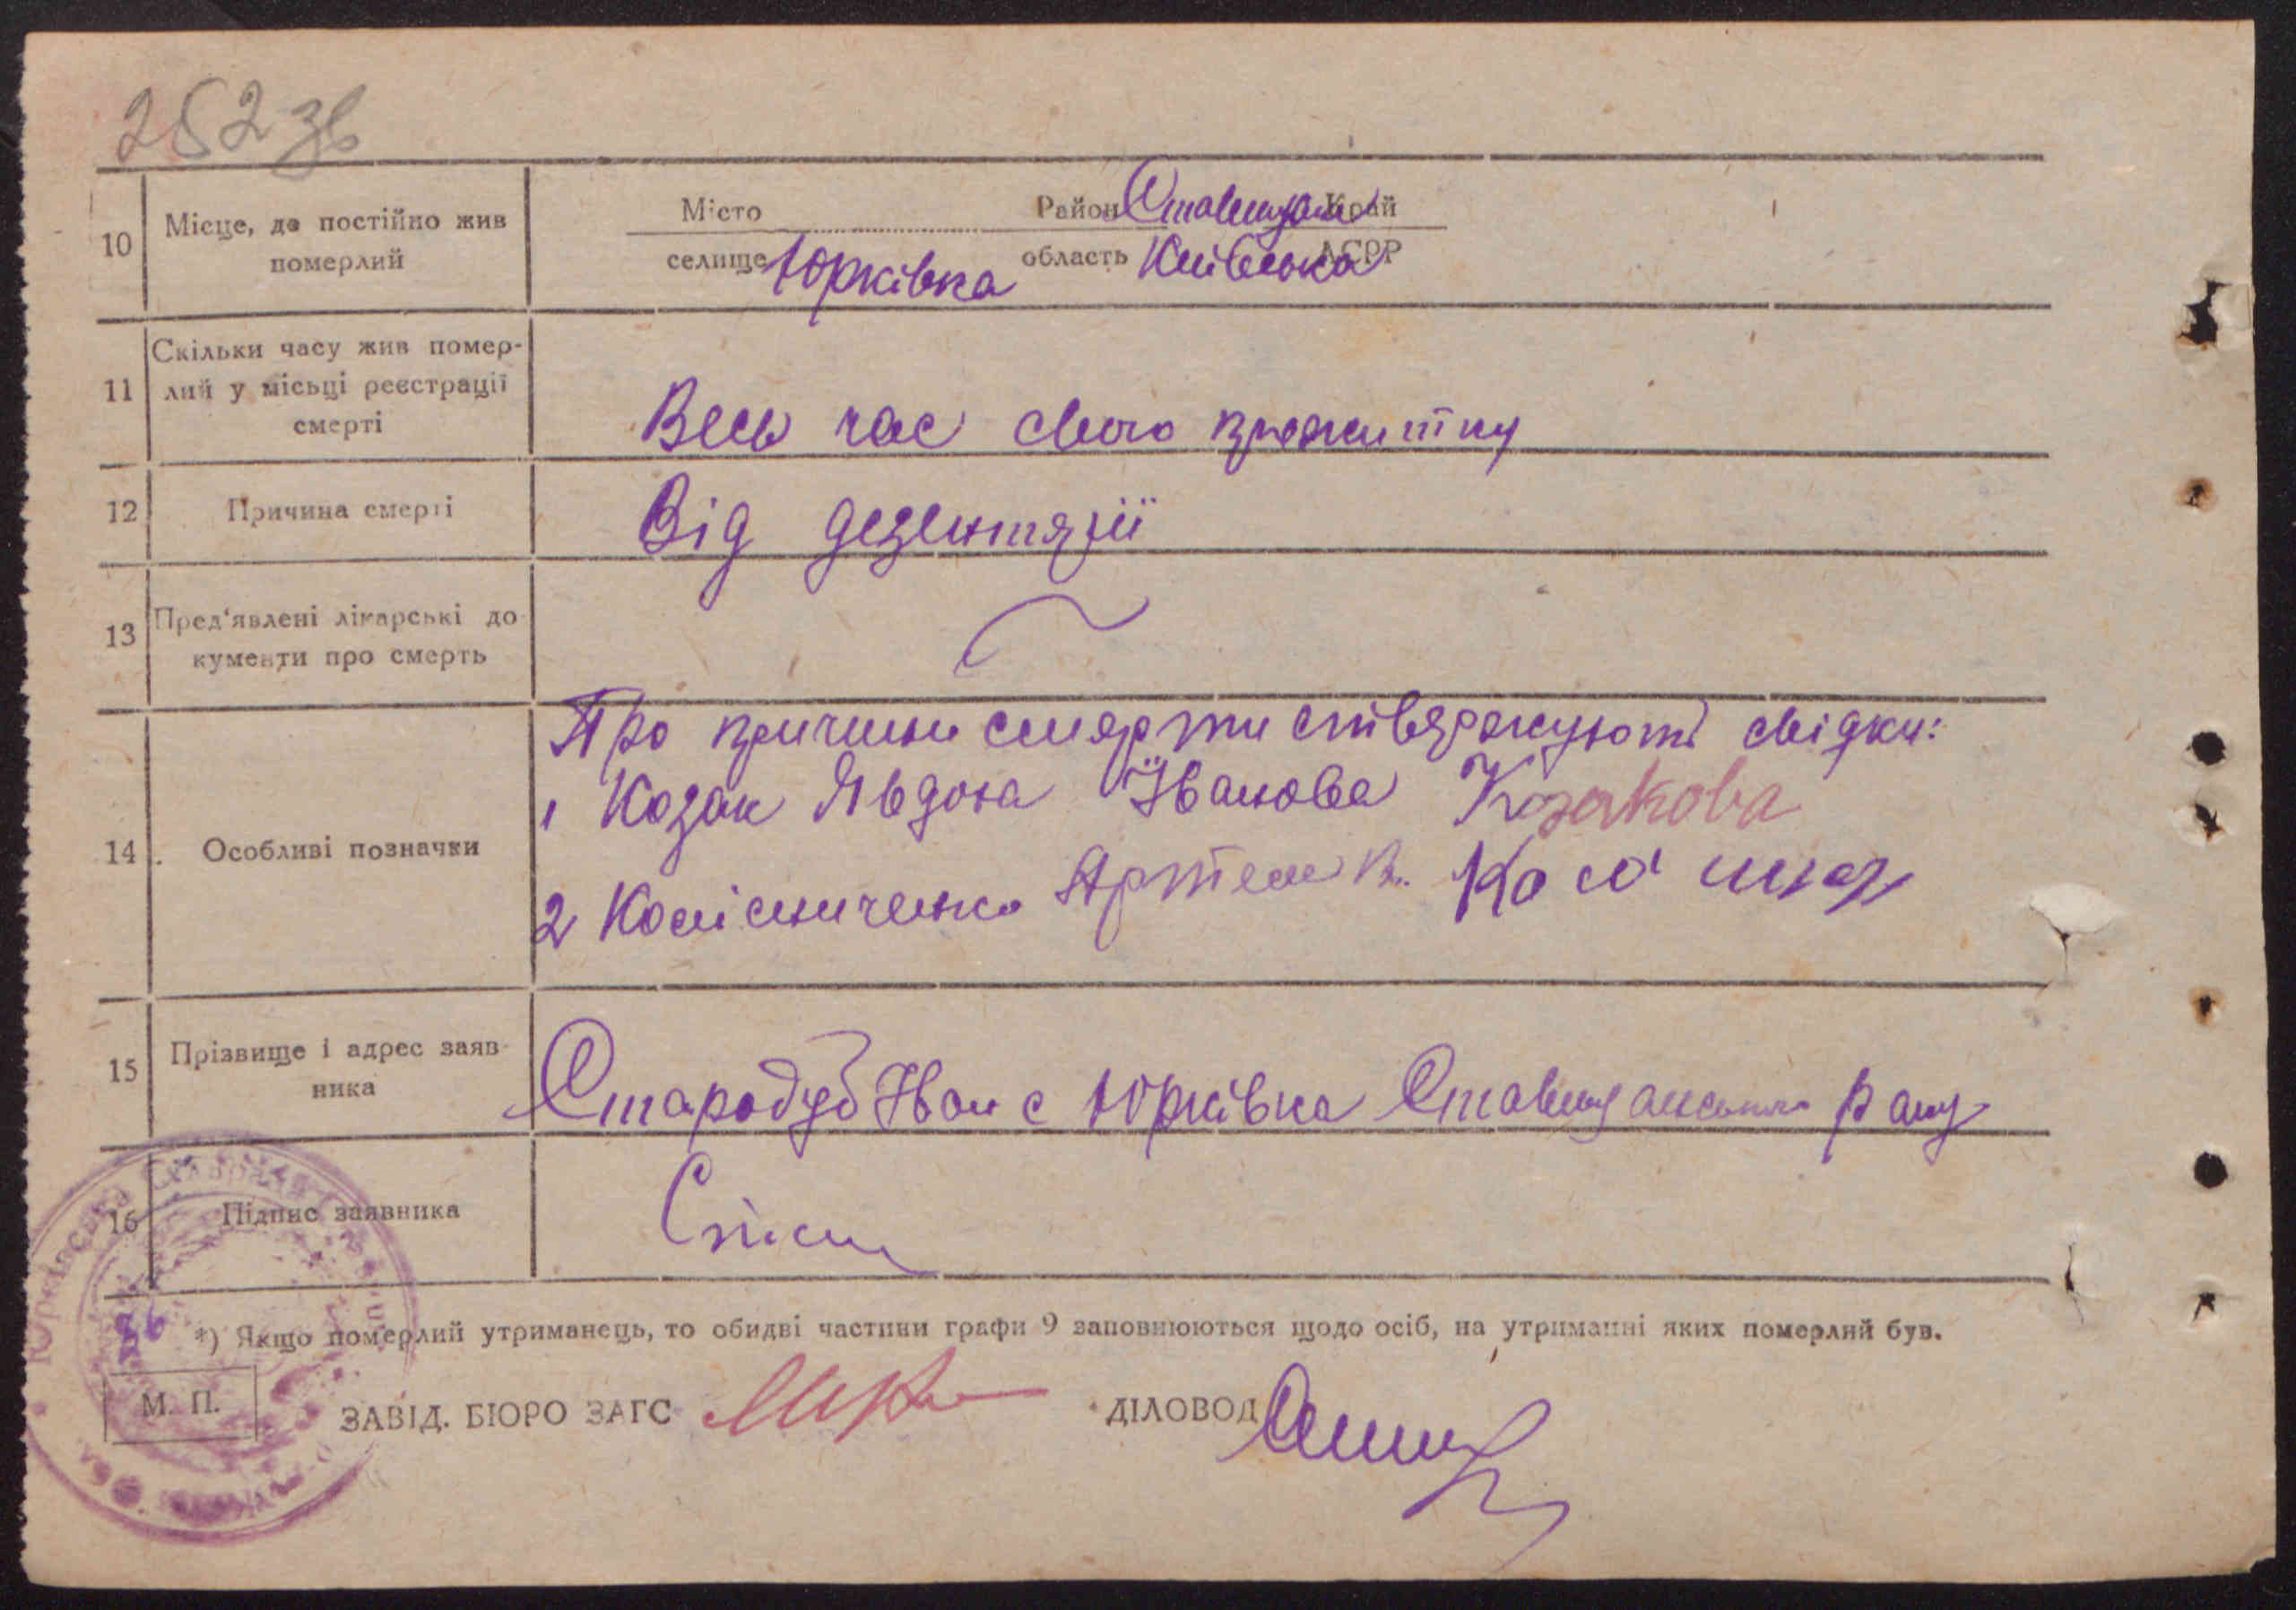 252 зв
10 Місце, де постійно жив померлий
Місто Район Ставищан Край
селище Юрківка область Київська АСРР
11 Скільки часу жив помер-
лий у місьці реєстрації
смерті
Весь час свого прожитку
12 Причина смерті Від дезентярії
13 Пред'явлені лікарські до-
кументи про смерть
14 Особливі позначки
Про причини смярти стівярджують свідки:
1 Козак Явдоха Іванова Козакова
2 Колісниченко Артем В.
15 Прізвище і адрес заяв-
ника
Стародуб Іван с Юрківка Ставищанського р ану
16 Підпис заявника
*) Якщо померлий утриманець, то обидві частини графи 9 заповнюються щодо осіб, на утриманні яких померлий був.
М. П. ЗАВІД. БЮРО ЗАГС ДІЛОВОД